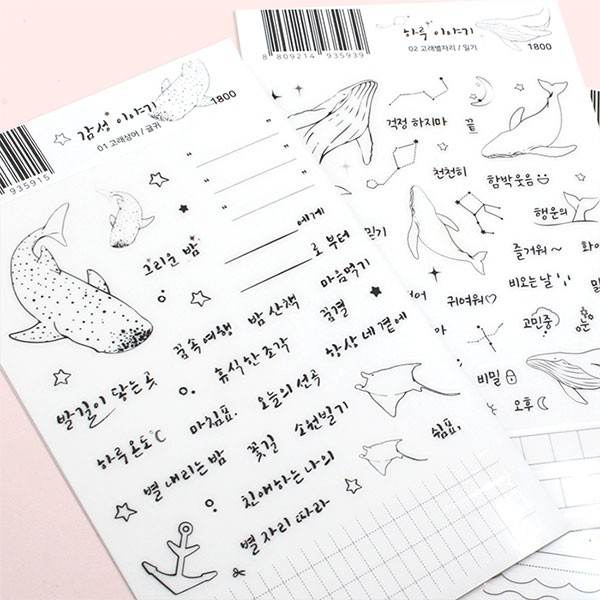 감성 이야기
01 고래상어 / 글귀
1800
935915
그리운 밤
에게
로 부터
꿈속여행
밤 산책
마음먹기
휴식 한 조각
꿈결
발길이 닿는 곳
오늘의 선곡
항상 네 곁에
하루온도℃
마침표.
꽃길
소원빌기
별 내리는 밤
친애하는 나의
쉼표,
별 자리 따라
하루 이야기
02 고래별자리 / 일기
1800
8 809214 935939
걱정 하지마
끝
천천히
함박웃음
행운의
믿기
즐거워~
화이
귀여워♡
비오는 날
고민중
눈
비밀
오후